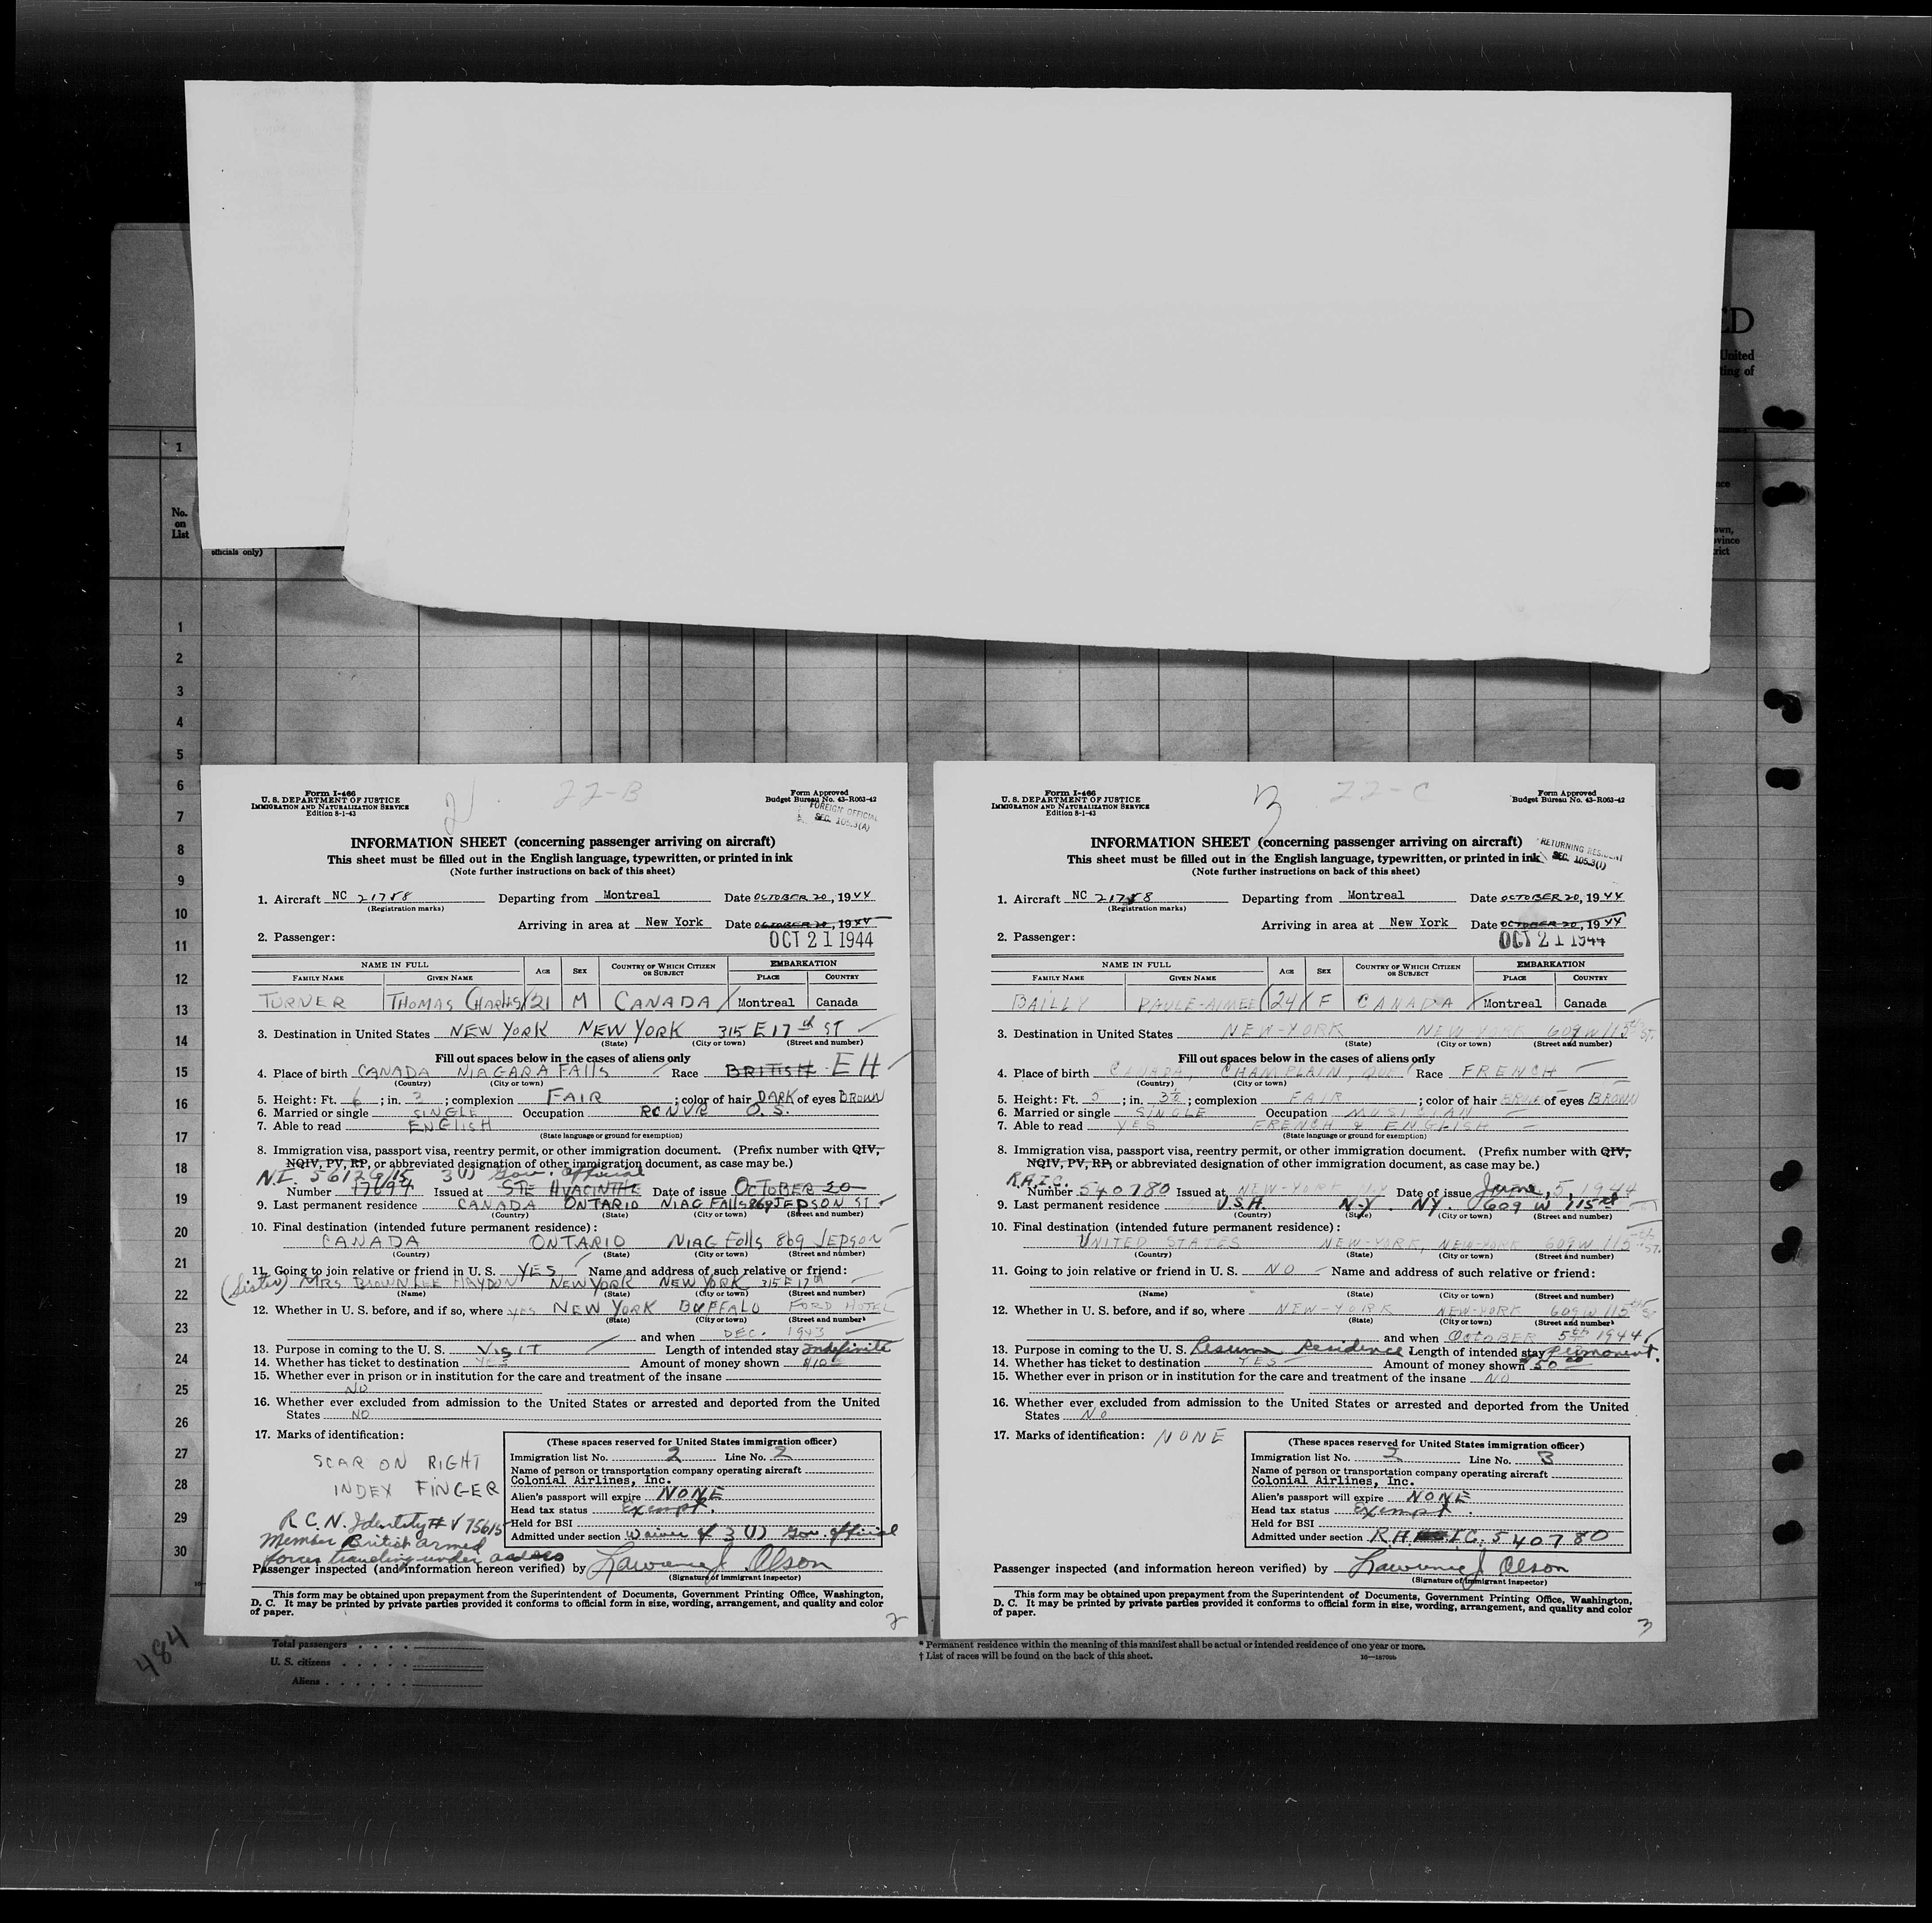 ED
United
ting of
1
No.
on
List
officials only)
nce
own,
ovince
trict
1
2
3
4
5
6
7
8
9
10
11
12
13
14
15
16
17
18
19
20
21
22
23
24
25
26
27
28
29
30
2 22-B
Form I-466
U. S. DEPARTMENT OF JUSTICE
IMMIGRATION AND NATURALIZATION SERVICE
Edition 8-1-43
Form Approved
Budget Bureau No. 43-R063-42
FOREIGN OFFICIAL
SEC. 105.3(A)
INFORMATION SHEET (concerning passenger arriving on aircraft)
This sheet must be filled out in the English language, typewritten, or printed in ink
(Note further instructions on back of this sheet)
1. Aircraft NC 21758 Departing from Montreal Date OCTOBER 20, 1944
(Registration marks)
Arriving in area at New York Date OCTOBER 20, 1944
2. Passenger: OCT 21 1944
NAME IN FULL AGE SEX COUNTRY OF WHICH CITIZEN OR SUBJECT EMBARKATION
FAMILY NAME GIVEN NAME PLACE COUNTRY
TURNER THOMAS CHARLES 21 M CANADA Montreal Canada
3. Destination in United States NEW YORK NEW YORK 315 E 17th ST
(State) (City or town) (Street and number)
Fill out spaces below in the cases of aliens only
4. Place of birth CANADA NIAGARA FALLS Race BRITISH EH
(Country) (City or town)
5. Height: Ft. 6; in. 3; complexion FAIR; color of hair DARK of eyes BROWN
6. Married or single SINGLE Occupation RCNVR O.S.
7. Able to read ENGLISH
(State language or ground for exemption)
8. Immigration visa, passport visa, reentry permit, or other immigration document. (Prefix number with QIV,
NQIV, PV, RP, or abbreviated designation of other immigration document, as case may be.)
N.I. 56126/15 3(1) Gov. official
Number 17694 Issued at STE HYACINTHE Date of issue OCTOBER 20
9. Last permanent residence CANADA ONTARIO NIAG FALLS 869 JEPSON ST
(Country) (State) (City or town) (Street and number)
10. Final destination (intended future permanent residence):
CANADA ONTARIO NIAG Falls 869 JEPSON
(Country) (State) (City or town) (Street and number)
11. Going to join relative or friend in U. S. YES Name and address of such relative or friend:
(Sister) MRS BROWNLEE HAYDON NEW YORK NEW YORK 315 E 17th
(Name) (State) (City or town) (Street and number)
12. Whether in U. S. before, and if so, where yes NEW YORK BUFFALO FORD HOTEL
(State) (City or town) (Street and number)
and when DEC. 1943
13. Purpose in coming to the U. S. VISIT Length of intended stay Indefinite
14. Whether has ticket to destination yes Amount of money shown $10
15. Whether ever in prison or in institution for the care and treatment of the insane
NO
16. Whether ever excluded from admission to the United States or arrested and deported from the United
States NO
17. Marks of identification:
SCAR ON RIGHT
INDEX FINGER
R.C.N. Identity # V 75615
Member British armed
forces traveling under orders
(These spaces reserved for United States immigration officer)
Immigration list No. 2 Line No. 2
Name of person or transportation company operating aircraft
Colonial Airlines, Inc.
Alien's passport will expire NONE
Head tax status Exempt.
Held for BSI
Admitted under section Waiver of 3(1) Gov. official
Passenger inspected (and information hereon verified) by Lawrence J Olson
(Signature of immigrant inspector)
This form may be obtained upon prepayment from the Superintendent of Documents, Government Printing Office, Washington,
D. C. It may be printed by private parties provided it conforms to official form in size, wording, arrangement, and quality and color
of paper.
2
3 22-C
Form I-466
U. S. DEPARTMENT OF JUSTICE
IMMIGRATION AND NATURALIZATION SERVICE
Edition 8-1-43
Form Approved
Budget Bureau No. 43-R063-42
INFORMATION SHEET (concerning passenger arriving on aircraft)
RETURNING RESIDENT
SEC. 105.3(1)
This sheet must be filled out in the English language, typewritten, or printed in ink
(Note further instructions on back of this sheet)
1. Aircraft NC 21758 Departing from Montreal Date OCTOBER 20, 1944
(Registration marks)
Arriving in area at New York Date OCTOBER 20, 1944
2. Passenger: OCT 21 1944
NAME IN FULL AGE SEX COUNTRY OF WHICH CITIZEN OR SUBJECT EMBARKATION
FAMILY NAME GIVEN NAME PLACE COUNTRY
BAILLY PAULE-AIMEE 24 F CANADA Montreal Canada
3. Destination in United States NEW-YORK NEW YORK 609 W 115th ST.
(State) (City or town) (Street and number)
Fill out spaces below in the cases of aliens only
4. Place of birth CANADA, CHAMPLAIN, QUE Race FRENCH
(Country) (City or town)
5. Height: Ft. 5; in. 3½; complexion FAIR; color of hair BROWN of eyes BROWN
6. Married or single SINGLE Occupation MUSICIAN
7. Able to read YES FRENCH & ENGLISH
(State language or ground for exemption)
8. Immigration visa, passport visa, reentry permit, or other immigration document. (Prefix number with QIV,
NQIV, PV, RP, or abbreviated designation of other immigration document, as case may be.)
R.A.I.C.
Number 540780 Issued at NEW-YORK N.Y Date of issue June, 5, 1944
9. Last permanent residence U.S.A. N.Y. NY. 609 W 115 st
(Country) (State) (City or town) (Street and number)
10. Final destination (intended future permanent residence):
UNITED STATES NEW-YORK, NEW-YORK 609 W 115th ST.
(Country) (State) (City or town) (Street and number)
11. Going to join relative or friend in U. S. NO Name and address of such relative or friend:
(Name) (State) (City or town) (Street and number)
12. Whether in U. S. before, and if so, where NEW-YORK NEW-YORK 609 W 115th St
(State) (City or town) (Street and number)
and when OCTOBER 5th 1944
13. Purpose in coming to the U. S. Resume Residence Length of intended stay Permanent.
14. Whether has ticket to destination YES Amount of money shown $50.00
15. Whether ever in prison or in institution for the care and treatment of the insane NO
16. Whether ever excluded from admission to the United States or arrested and deported from the United
States NO
17. Marks of identification: NONE
(These spaces reserved for United States immigration officer)
Immigration list No. 2 Line No. 3
Name of person or transportation company operating aircraft
Colonial Airlines, Inc.
Alien's passport will expire NONE
Head tax status Exempt.
Held for BSI
Admitted under section R.A. I.C. 540780
Passenger inspected (and information hereon verified) by Lawrence J Olson
(Signature of immigrant inspector)
This form may be obtained upon prepayment from the Superintendent of Documents, Government Printing Office, Washington,
D. C. It may be printed by private parties provided it conforms to official form in size, wording, arrangement, and quality and color
of paper.
3
484
Total passengers
U. S. citizens
Aliens
* Permanent residence within the meaning of this manifest shall be actual or intended residence of one year or more.
† List of races will be found on the back of this sheet.